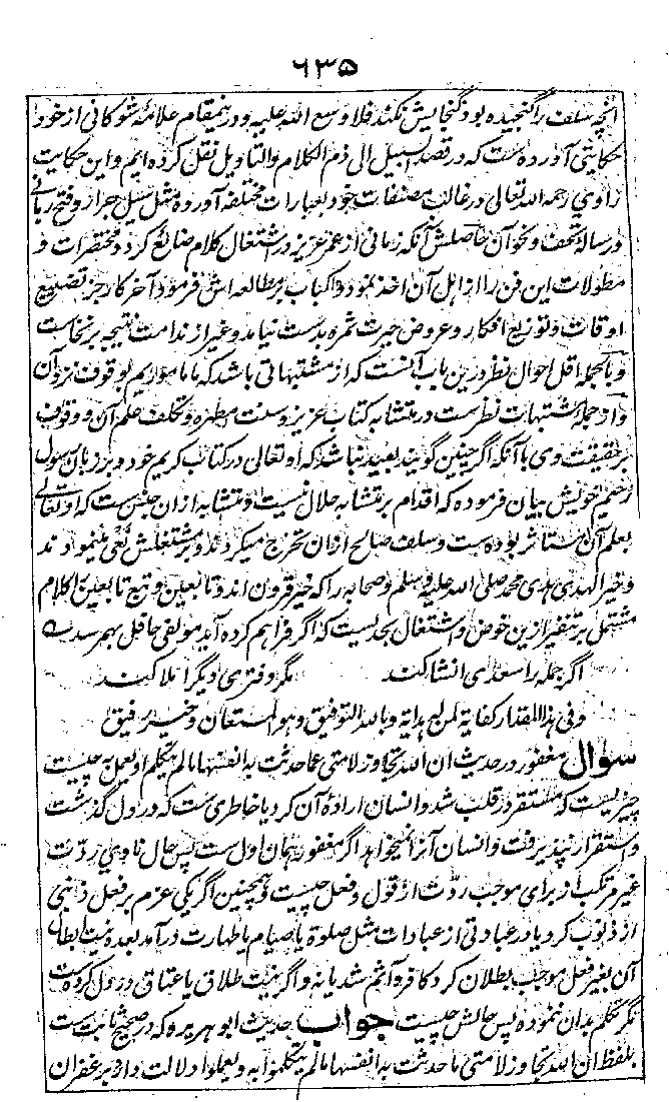 ٦٣٥
آنچه سلف را گنجیده بود گنجایش نکند فلا وسع الله علیه و درینمقام علامهٔ شوکانی از خود
حکایتی آورده است که در قصد السبیل الی ذم الکلام والتاویل نقل کرده ایم و این حکایت
را وی رحمه الله تعالی در غالب مصنفات خود بعبارات مختلفه آورده مثل سیل جرار و فتح ربانی
و رسالهٔ تحف و نحو آن حاصلش آنکه زمانی از عمر عزیز در اشتغال کلام ضائع کرد و مختصرات و
مطولات این فن را از اهل آن اخذ نمود و اکباب بر مطالعه اش فرمود آخر کار جز تضییع
اوقات و توزیع افکار و عروض حیرت ثمره بدست نیامد و غیر از ندامت نتیجه برنخاست
و بالجمله اقل احوال نظر درین باب آنست که از مشتبهاتی باشد که ما ماموریم بوقوف نزد آن
و از جملهٔ مشتبهات نظرست در متشابه کتاب عزیز و سنت مطهره و تکلف علم آن و وقوف
بر حقیقت وی با آنکه اگر چنین گویند بعید نباشد که او تعالی در کتاب کریم خود و بر زبان رسول
رحیم خویش بیان فرموده که اقدام بر متشابه حلال نیست و متشابه ازان جنس ست که او تعالی
بعلم آن مستاثر بوده ست و سلف صالح ازان تحرج میکردند و بر مشتغلش نعی مینمودند
و خیر الهدی هدی محمد صلی الله علیه وسلم و صحابه را که خیر قرون اند و تابعین و تبع تابعین را کلام
مشتمل بر تنفیر ازین خوض و اشتغال بحدیست که اگر فراهم کرده آید مولفی حافل بهم رسد
اگر جمله را سعدی انشا کند مگر دفتری دیگر املا کند
و فی هذا المقدار کفایة لمن له هدایة و بالله التوفیق و هو المستعان و خیر رفیق
سوال مغفور در حدیث ان الله تجاوز لامتی عما حدثت به انفسها ما لم یتکلم او یعمل به چیست
چیزیست که مستقر در قلب شد و انسان ارادهٔ آن کرد یا خاطری ست که در دل گذشت
و استقرار نپذیرفت و انسان آنرا نمیخواهد اگر مغفور همان اول ست پس حال ناوی ردت
غیر مرتکب از برای موجب ردت از قول و فعل چیست و همچنین اگر یکی عزم بر فعل ذنبی
از ذنوب کرد یا در عبادتی از عبادات مثل صلوة یا صیام یا طهارت در آمد بعده نیت ابطال
آن بغیر فعل موجب بطلان کرد کافر و آثم شد یا نه و اگر نیت طلاق یا عتاق در دل کرده ست
مگر تکلم بدان ننموده پس حالش چیست جواب حدیث ابو هریره که در صحیح ثابت ست
بلفظ ان الله تجاوز لامتی ما حدثت به انفسها ما لم یتکلموا به و یعملوا دلالت دارد بر غفران